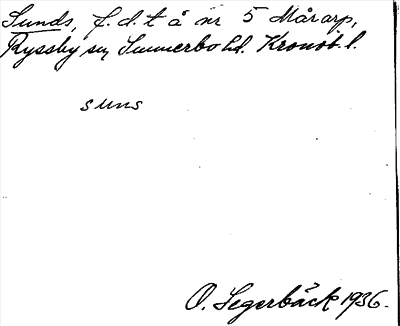 Sunds, f.d.t å nr 5 Mårarp,
Ryssby sn, Sunnerbo hd. Kronob. l.
suns
O. Segerbäck 1936.